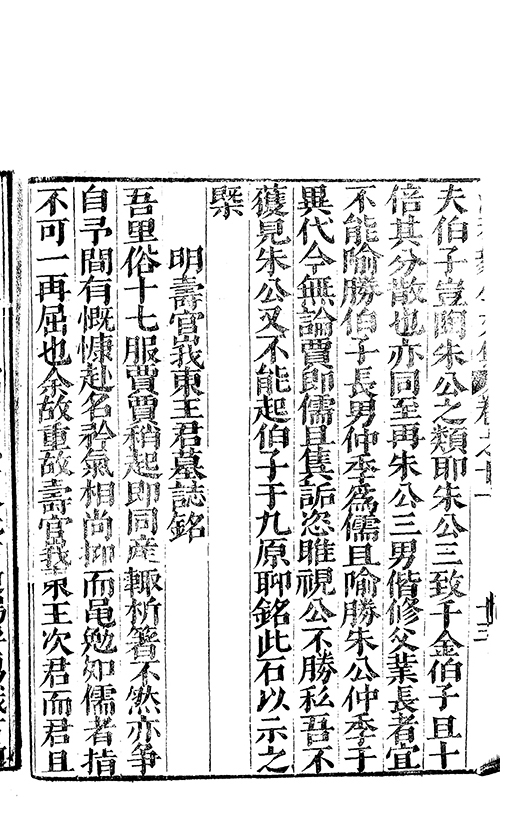 夫伯子豈陶朱公之類耶朱公三致千金伯子且十
倍其分散也亦同至再朱公三男偕修父業長者宜
不能喻勝伯子長男仲季爲儒且喻勝朱公仲季于
異代今無論賈卽儒且隻詬恣睢視公不勝私吾不
獲見朱公又不能起伯子于九原聊銘此石以示之
槩
明壽官峩東王君墓誌銘
吾里俗十七服賈賈稍起即同産輙析箸不然亦爭
自予間有慨慷赴名矜氣相尚抑而黽勉如儒者指
不可一再屈也余故重故壽官峩東王次君而君且